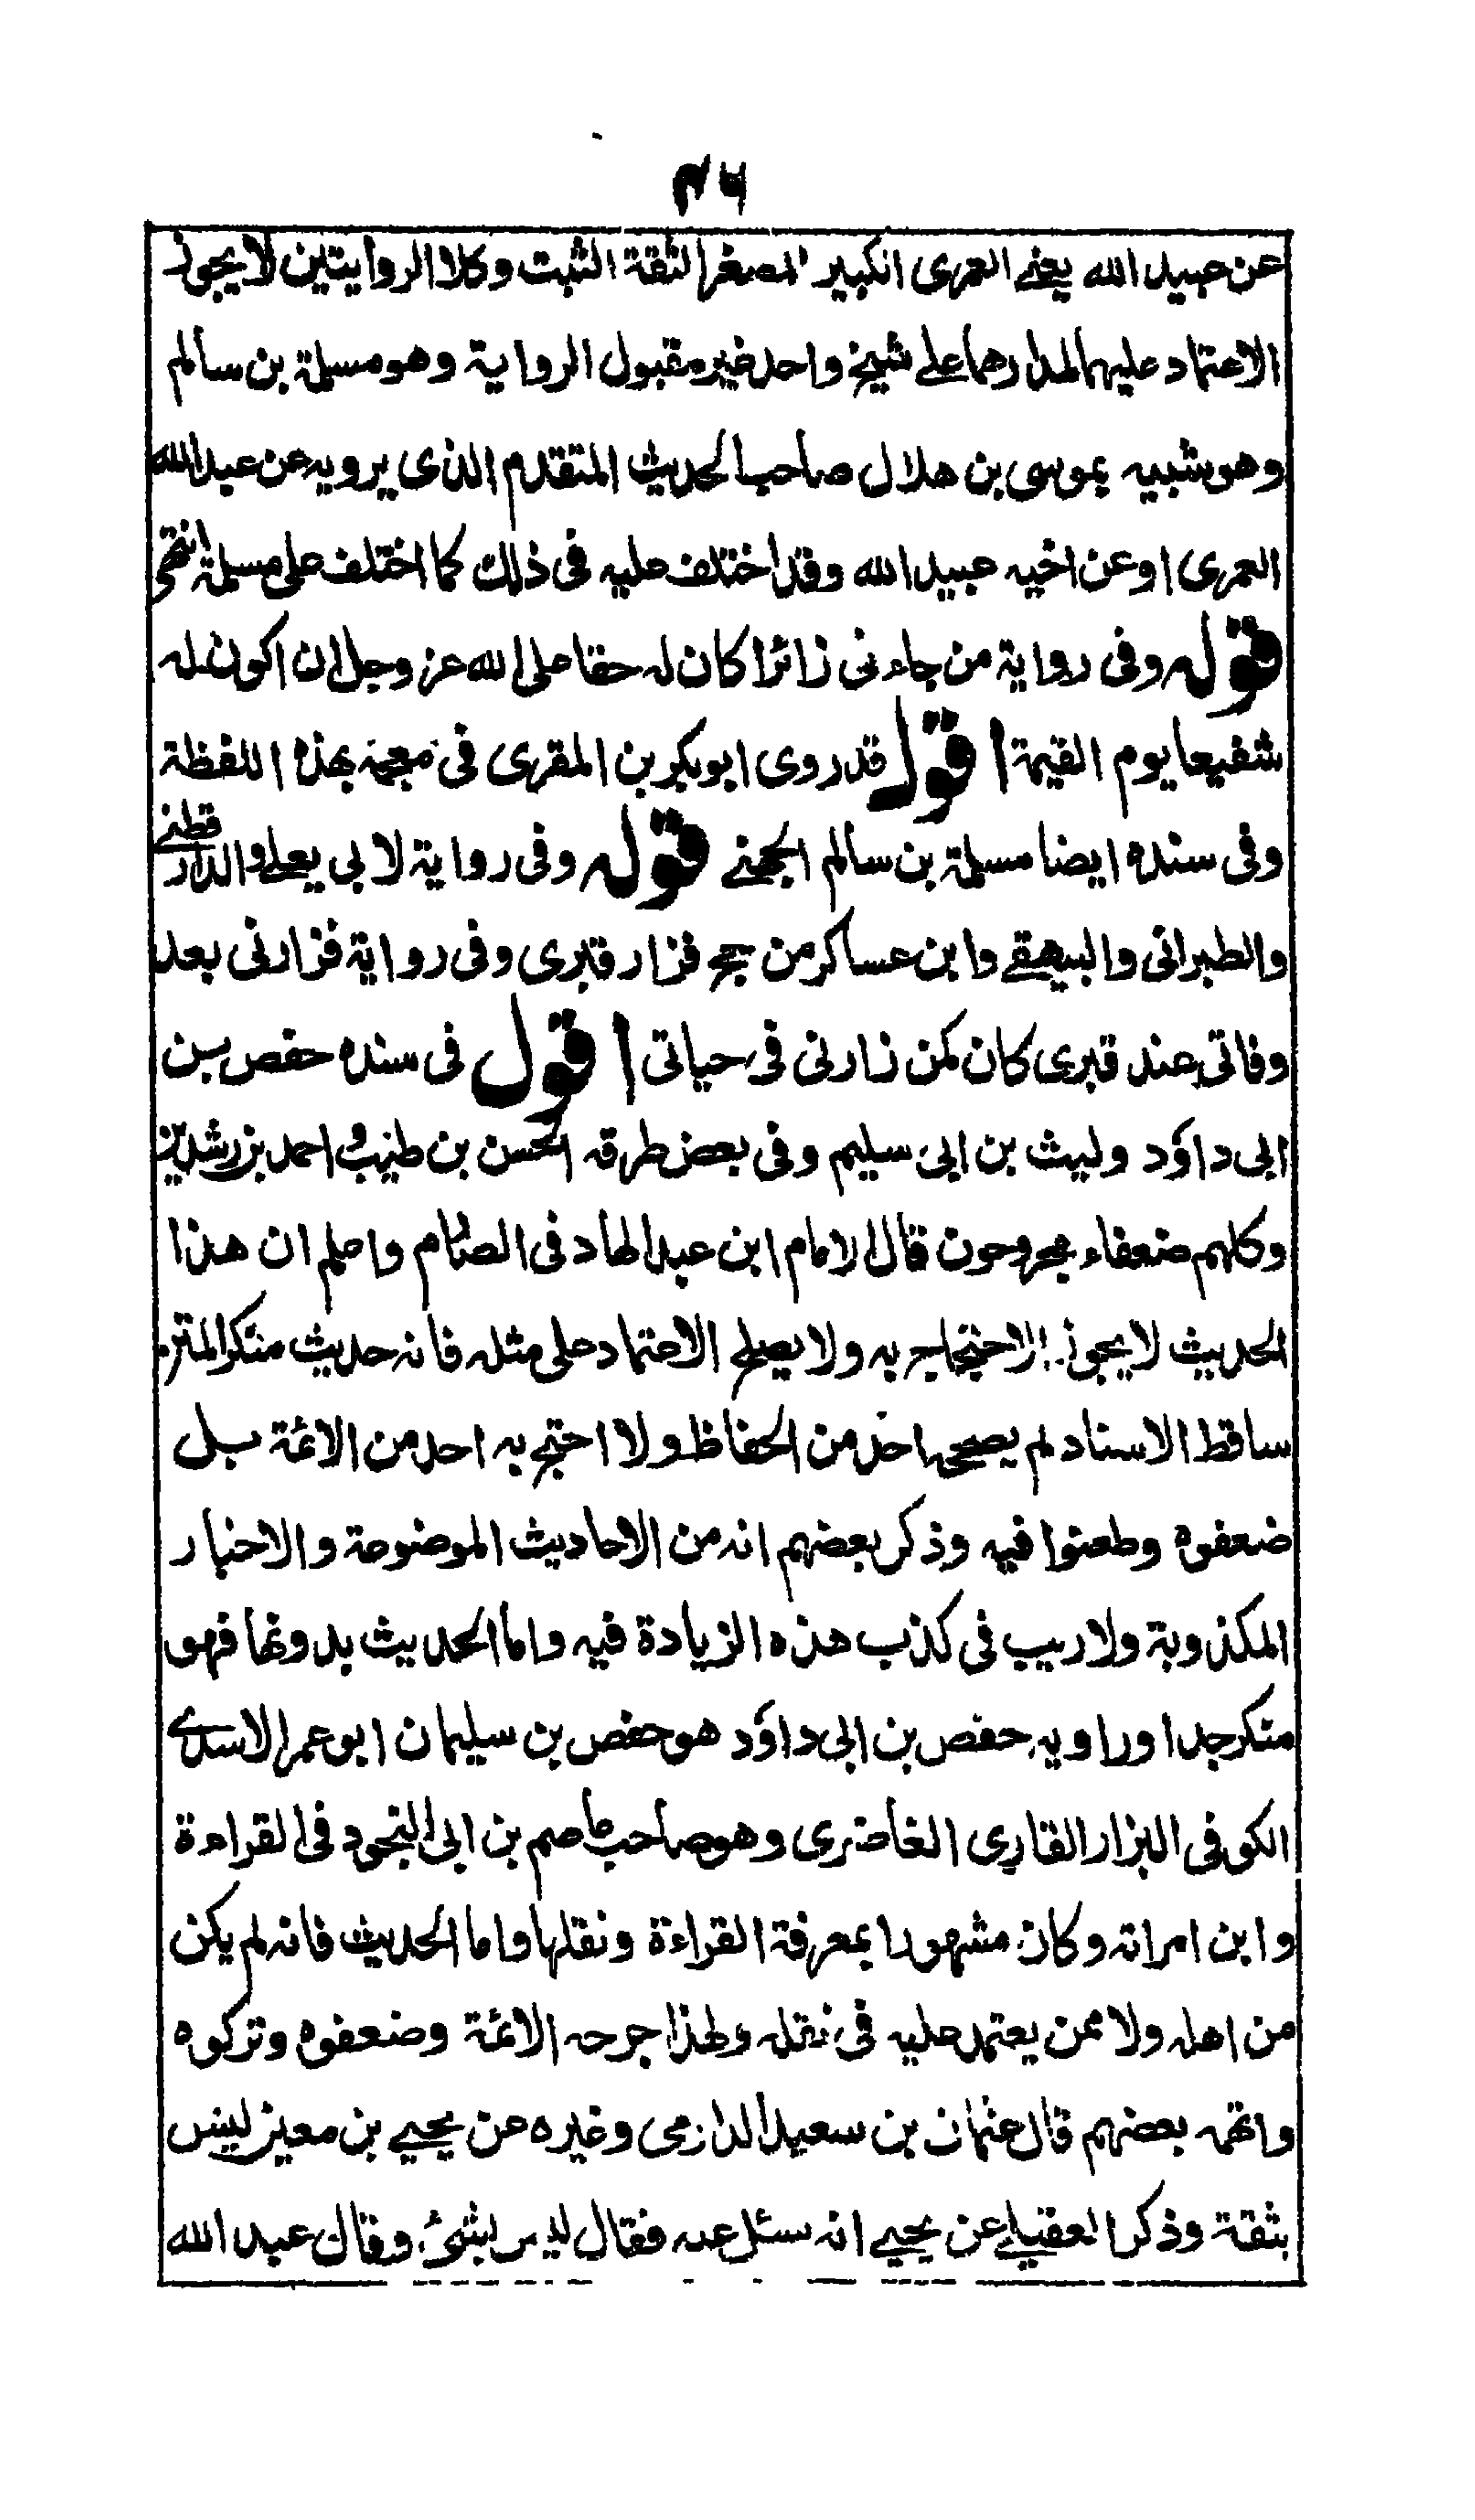 ٤٦
عن عبيد الله يعنى العمرى الكبير المصغر الثقة الثبت وكلا الروايتين لا يجوز
الاعتماد عليهما لمدارهما على شيخ واحد غير مقبول الرواية وهو مسلمة بن سالم
وهو شبيه بموسى بن هلال صاحب الحديث المتقدم الذى يرويه عن عبد الله
العمرى او عن اخيه عبيد الله وقد اختلف عليه فى ذلك كما اختلف على مسلمة انتهى
قوله وفى رواية من جاءنى زائرا كان له حقا على الله عز وجل ان اكون له
شفيعا يوم القيمة اقول قد روى ابو بكر بن المقرى فى معجمه بهذه اللفظة
وفى سنده ايضا مسلمة بن سالم الجهنى قوله وفى رواية لابى يعلى والدارقطنى
والطبرانى والبيهقى وابن عساكر من حج فزار قبرى وفى رواية فزارنى بعد
وفاتى عند قبرى كان كمن زارنى فى حياتى اقول فى سنده حفص بن
ابى داؤد وليث بن ابى سليم وفى بعض طرقه الحسن بن طيب احمد بن رشدين
وكلهم ضعفاء مجروحون قال الامام ابن عبد الهاد فى الصارم واعلم ان هذا
الحديث لا يجوز الاحتجاج به ولا يصلح الاعتماد على مثله فانه حديث منكر المتن
ساقط الاسناد لم يصححه احد من الحفاظ ولا احتج به احد من الائمة بل
ضعفوه وطعنوا فيه وذكر بعضهم انه من الاحاديث الموضوعة والاخبار
المكذوبة ولا ريب فى كذب هذه الزيادة فيه واما الحديث بدونها فهو
منكر جدا وراويه حفص بن ابى داؤد هو حفص بن سليمان ابو عمر الاسدى
الكوفى البزار القارى الغاضرى وهو صاحب عاصم بن ابى النجود فى القراءة
وابن امراته وكان مشهورا بمعرفة القراءة ونقلها واما الحديث فانه لم يكن
من اهله ولا ممن يعتمد عليه فى نقله ولهذا جرحه الائمة وضعفوه وتركوه
واتهمه بعضهم قال عثمان بن سعيد الدارمى وغيره عن يحيى بن معين ليس
بثقة وذكر العقيلى عن يحيى انه سئل عنه فقال ليس بشئ وقال عبد الله